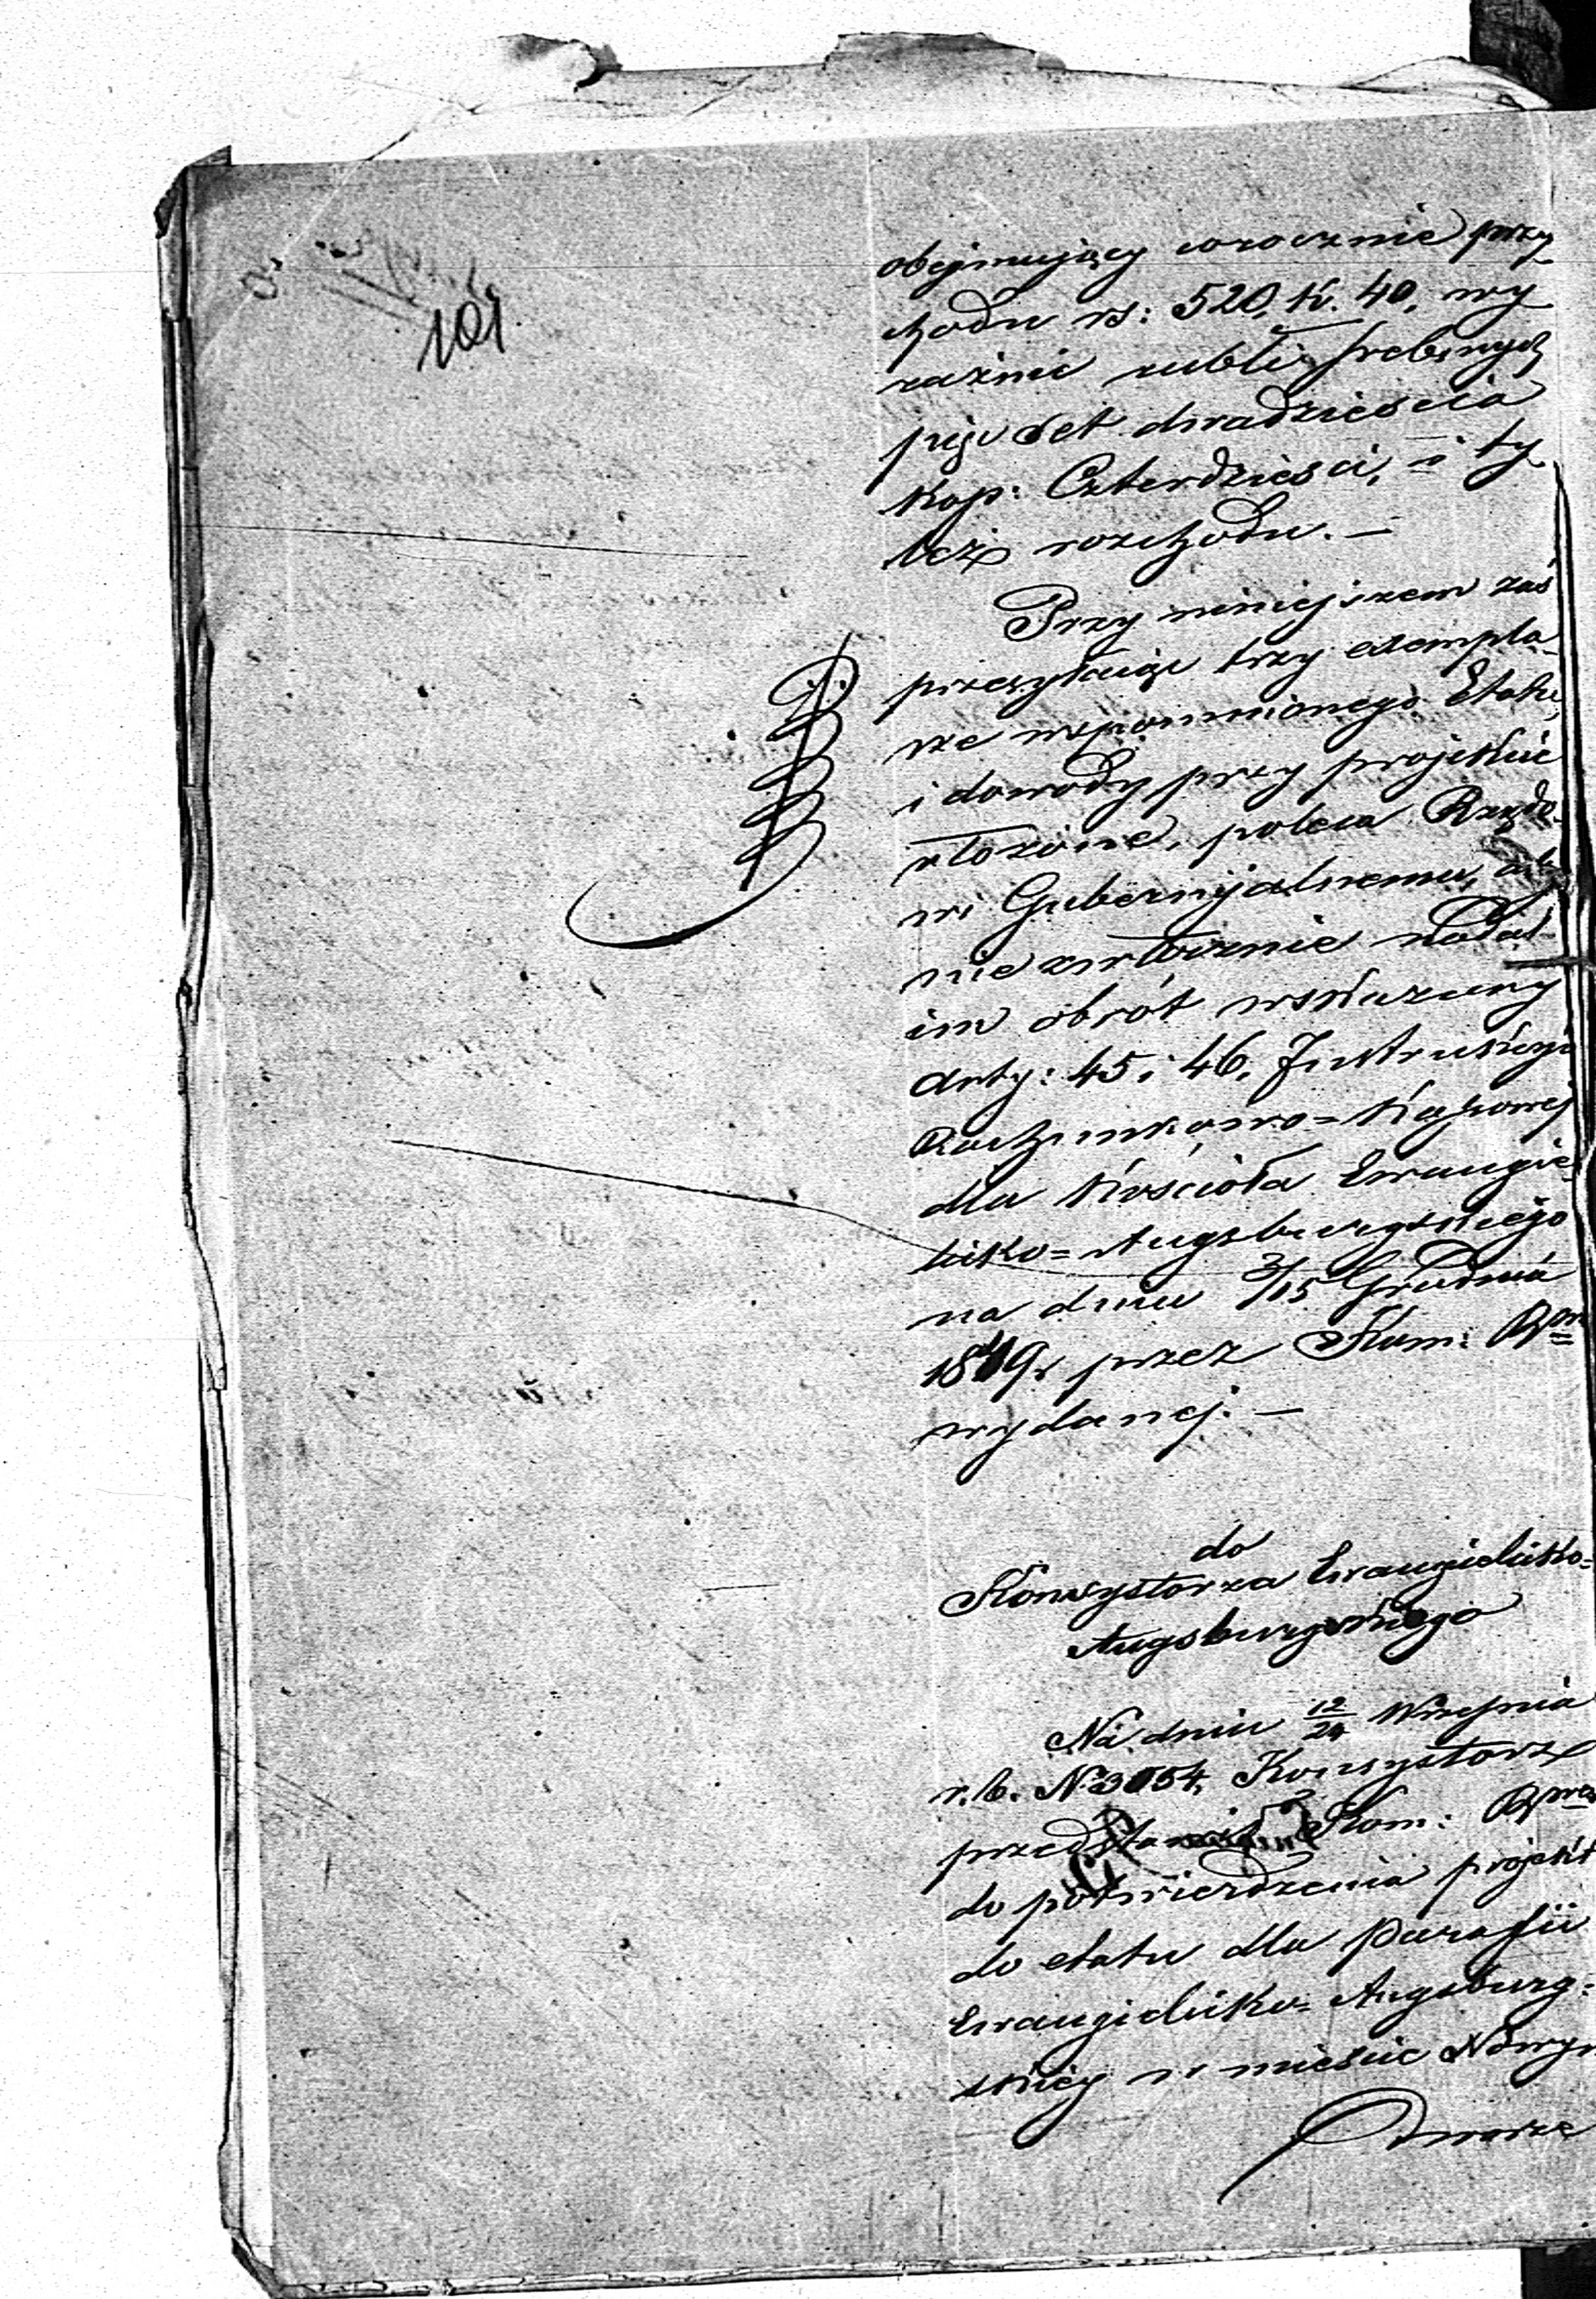 101
obejmujący corocznie przy
chodu rs: 520, k. 40, wy
raźnie rubli srebrnych
pięćset dwadzieścia
kop: Czterdzieści, i ty
leż rozchodu. —
Przy niniejszem zaś
przesyłając trzy exempla-
rze wspomnionego Etatu,
i dowody przy projekcie
złożone, poleca Rządo-
wi Gubernijalnemu, aby
niezwłocznie nadał
im obrót wskazany
arty: 45 i 46, Instrukcyi
Rachunkowo=Kassowej
dla Kościoła Ewangie-
licko=Augsburgskiego
na dniu 3/15 Grudnia
1849 r. przez Kom: Rz
wydanej. —
do
Konsystorza Ewangielicko-
Augsburgskiego
Na dniu 12/24 Września
r. b. N 3054, Konsystorz
przedstawił Kom: Rz
do potwierdzenia projekt
do etatu dla Parafii
Ewangielicko=Augsburg=
skiey w mieście Nowym
Dworze